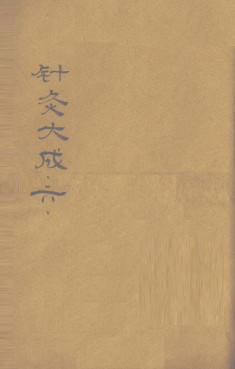 针灸大成·六·